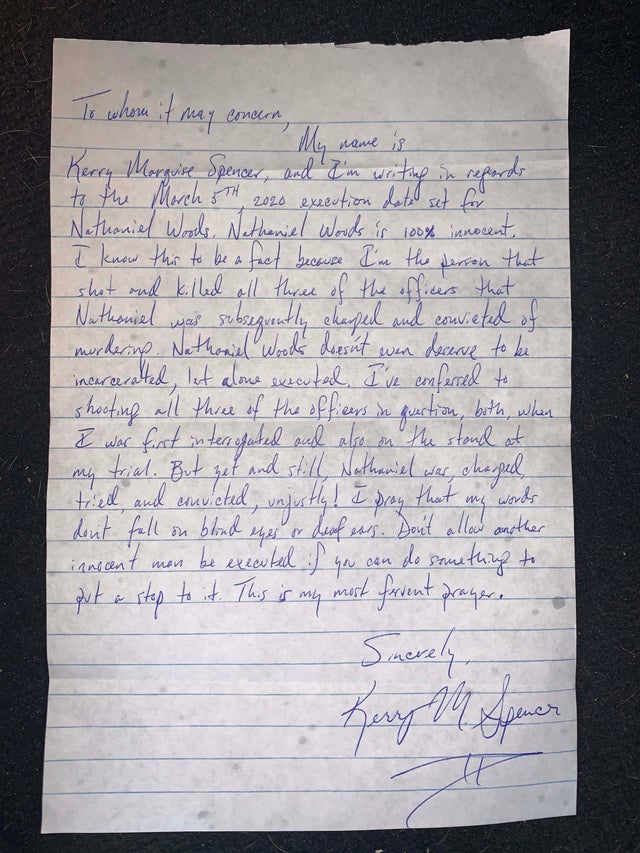 To whom it may concern,
My name is
Kerry Marquise Spencer, and I'm writing in regards
to the March 5TH, 2020 execution date set for
Nathaniel Woods. Nathaniel Woods is 100% innocent.
I know this to be a fact because I'm the person that
shot and killed all three of the officers that
Nathaniel was subsequently charged and convicted of
murdering. Nathaniel Woods doesn't even deserve to be
incarcerated, let alone executed. I've confessed to
shooting all three of the officers in question, both, when
I was first interrogated and also on the stand at
my trial. But yet and still, Nathaniel was, charged,
tried, and convicted, unjustly! I pray that my words
don't fall on blind eyes or deaf ears. Don't allow another
innocent man be executed if you can do something to
put a stop to it. This is my most fervent prayer.
Sincerely,
Kerry M. Spencer
II